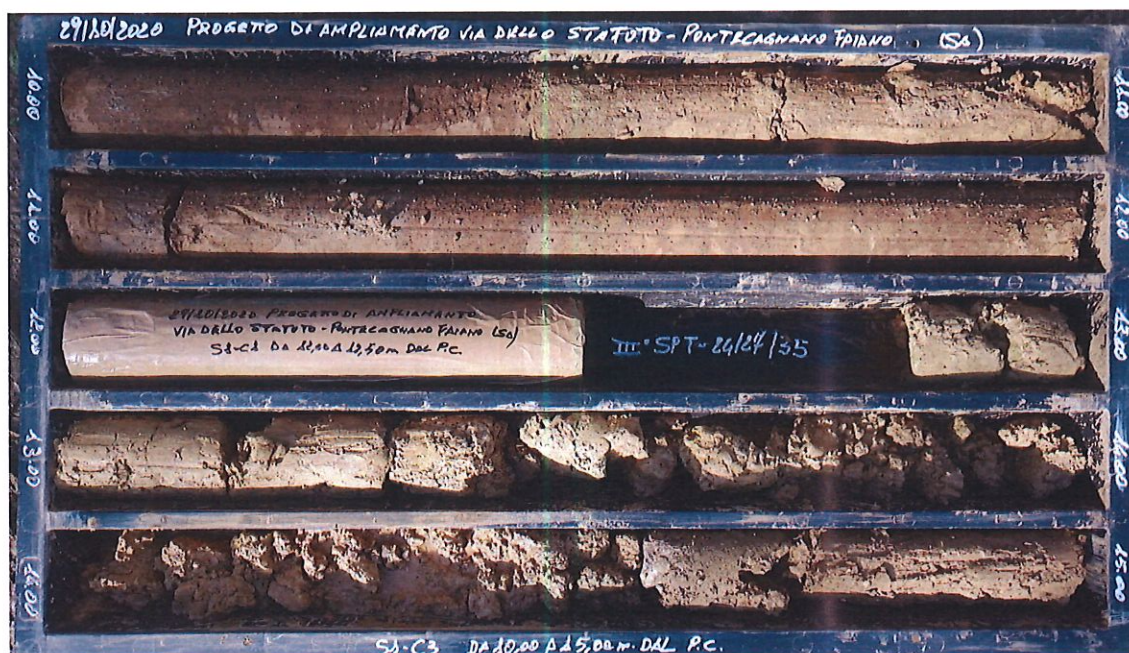 29/10/2020 PROGETTO DI AMPLIAMENTO VIA DELLO STATUTO - PONTECAGNANO FAIANO (SA)
10.00
11.00
11.00
12.00
12.00
29/10/2020 PROGETTO DI AMPLIAMENTO
VIA DELLO STATUTO - PONTECAGNANO FAIANO (SA)
S1-C1 DA 12,00 A 12,50 m DAL P.C.
III° SPT - 24/27/35
13.00
13.00
14.00
14.00
15.00
S1-C3 DA 10,00 A 15,00 m. DAL P.C.